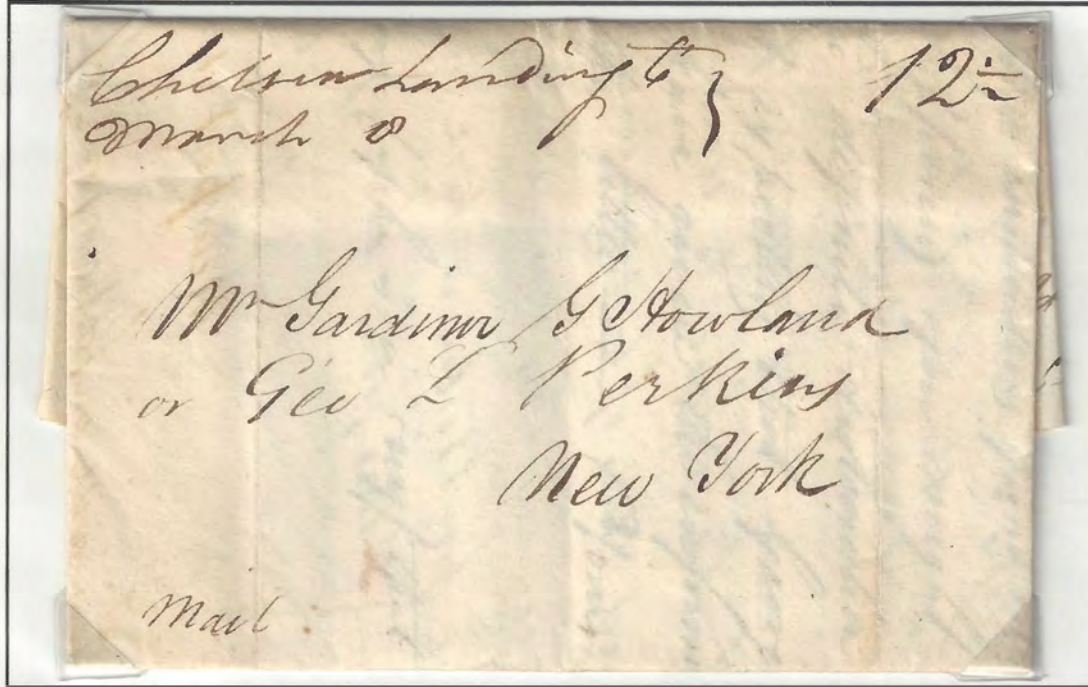 Chelsea Landing Ct } 12½
March 8
Mr Gardiner G Howland
or Geo L Perkins
New York
Mail